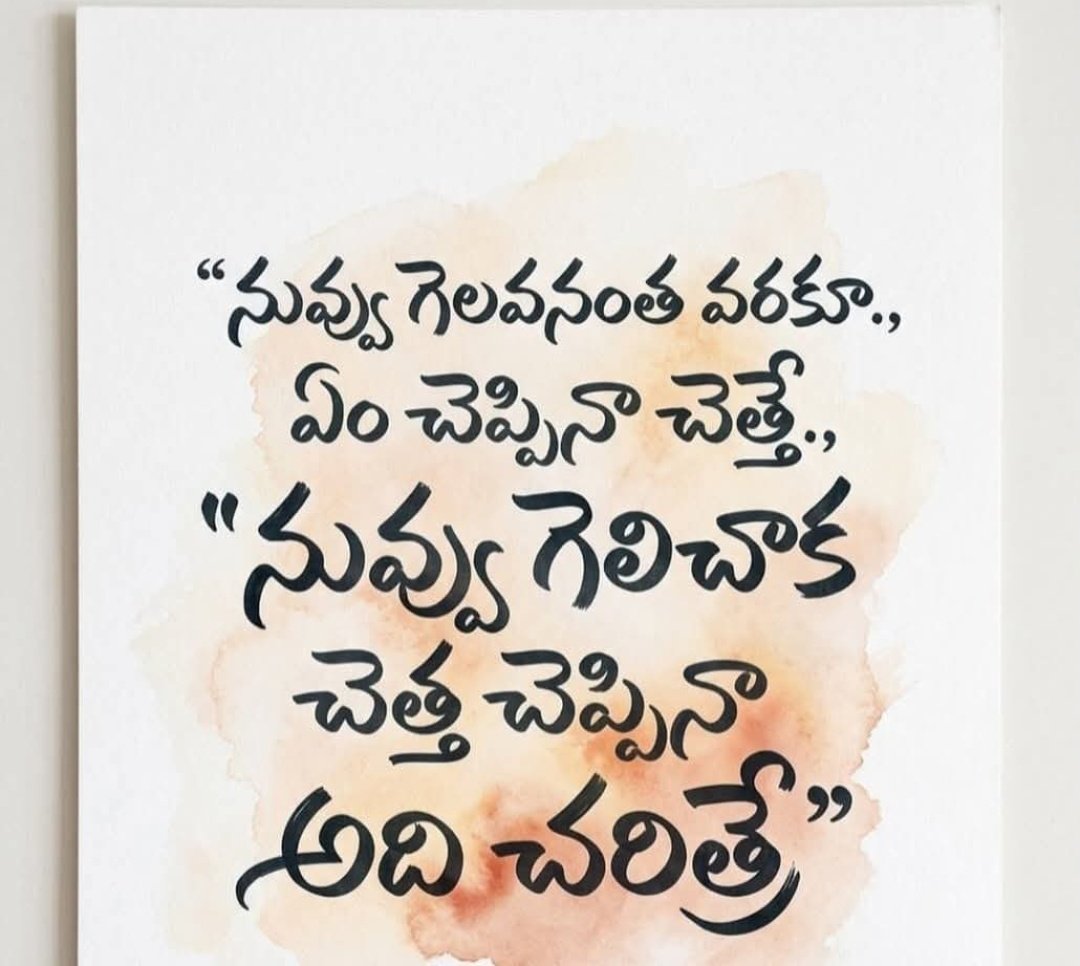 “నువ్వు గెలవనంత వరకూ.,
ఏం చెప్పినా చెత్తే.,
"నువ్వు గెలిచాక
చెత్త చెప్పినా
అది చరిత్రే”